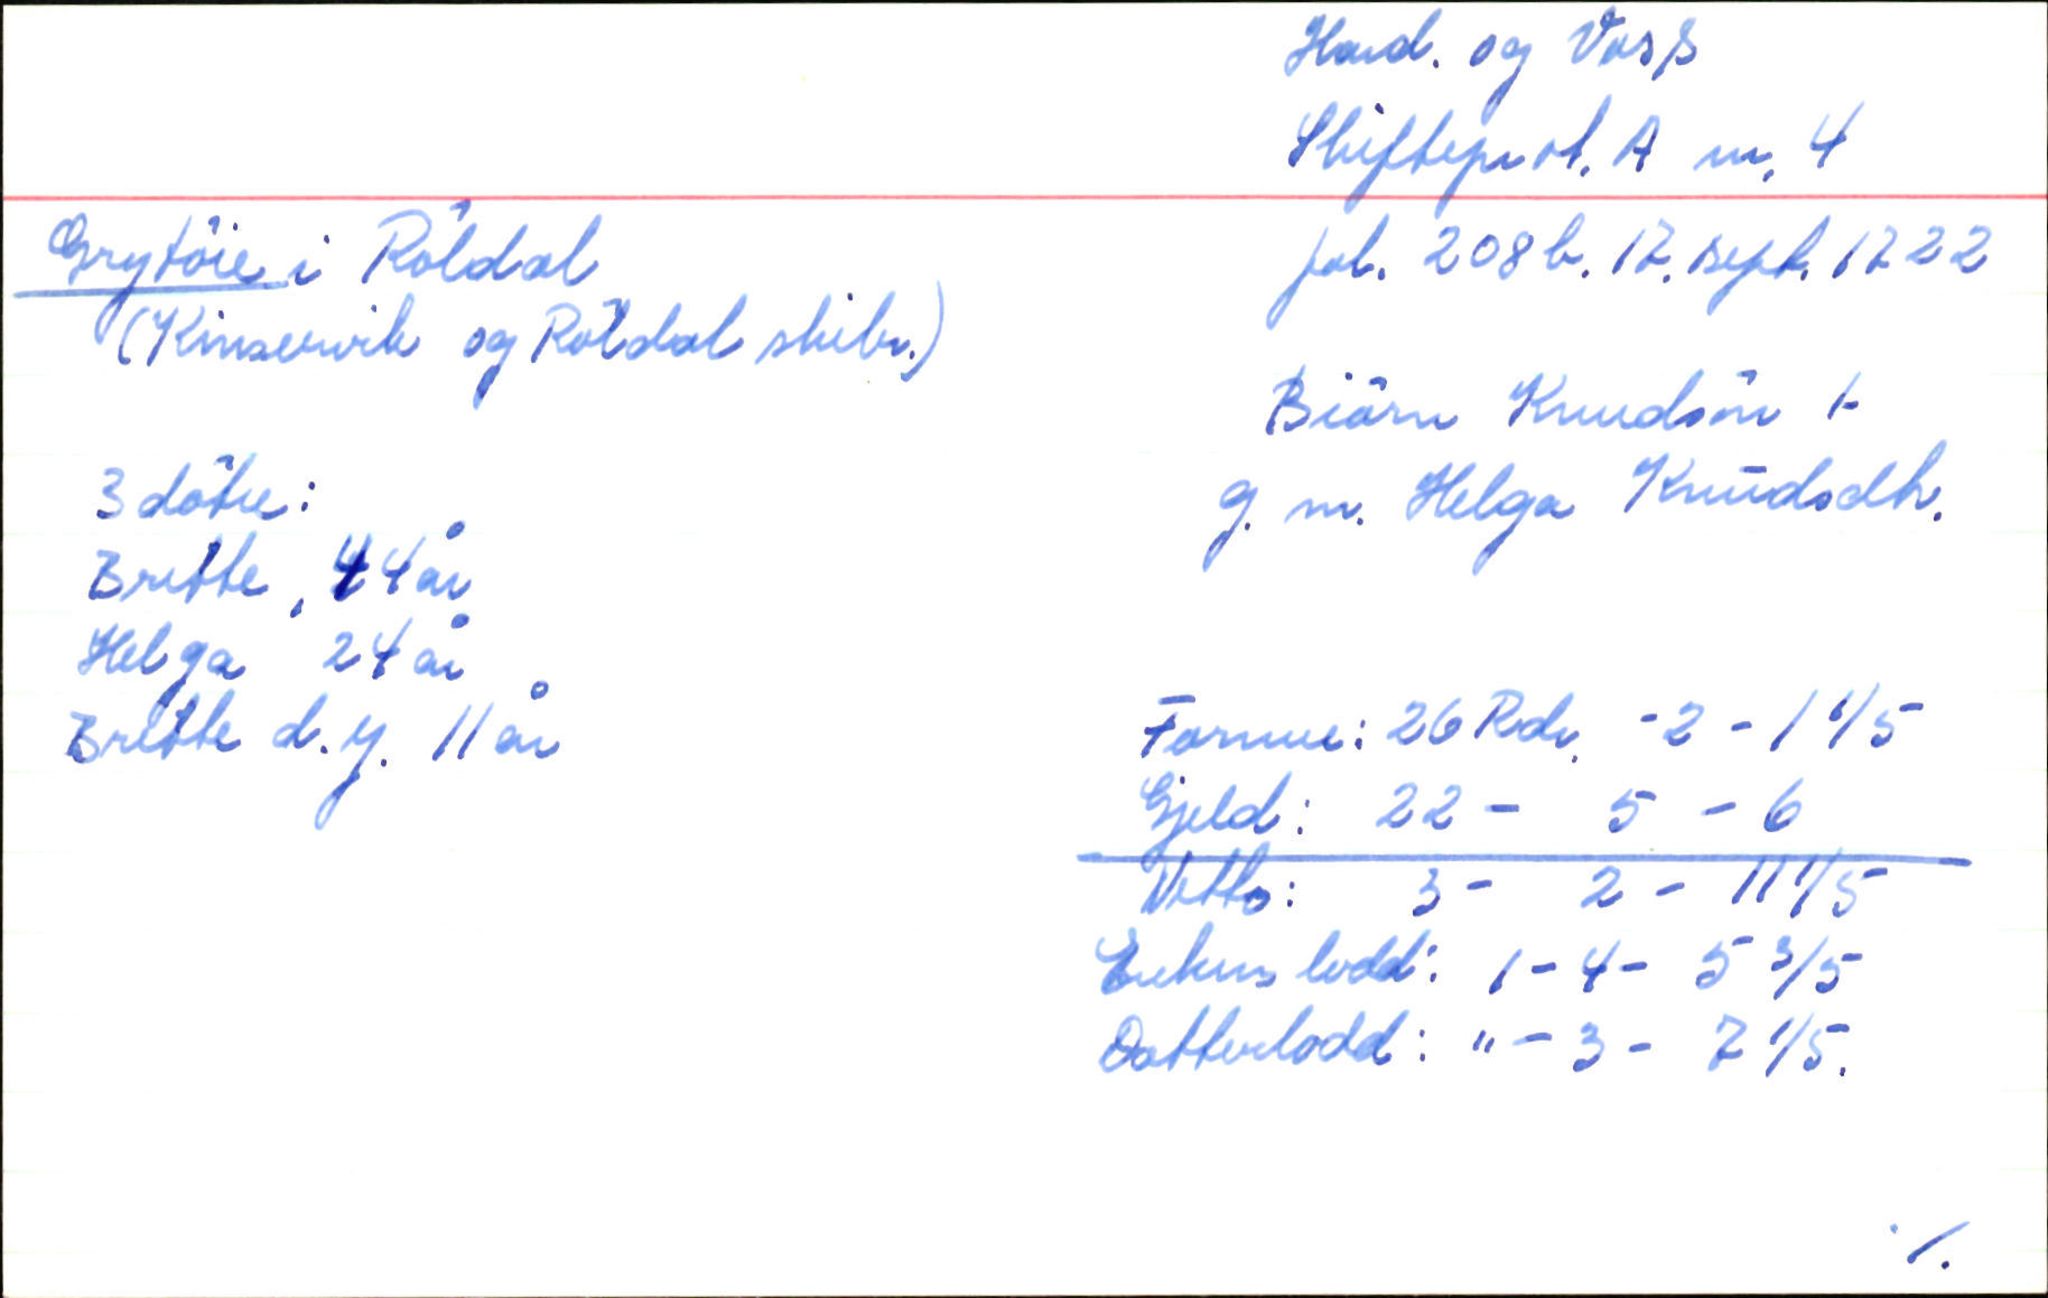 Hard. og Voss
Skifteprot. A nr. 4
fol. 208 b. 17. sept. 1722
Grytöie i Röldal
(Kinservik og Röldal skibr.)
Biörn Knudsön †
g. m. Helga Knudsdtr.
3 dötre:
Britte, 44 år
Helga 24 år
Britte d. y. 11 år
Formue: 26 Rdr. - 2 - 1 1/5
Gjeld: 22 - 5 - 6
Netto: 3 - 2 - 11 1/5
Enkens lodd: 1 - 4 - 5 3/5
Datterlodd: " - 3 - 7 1/5.
./.